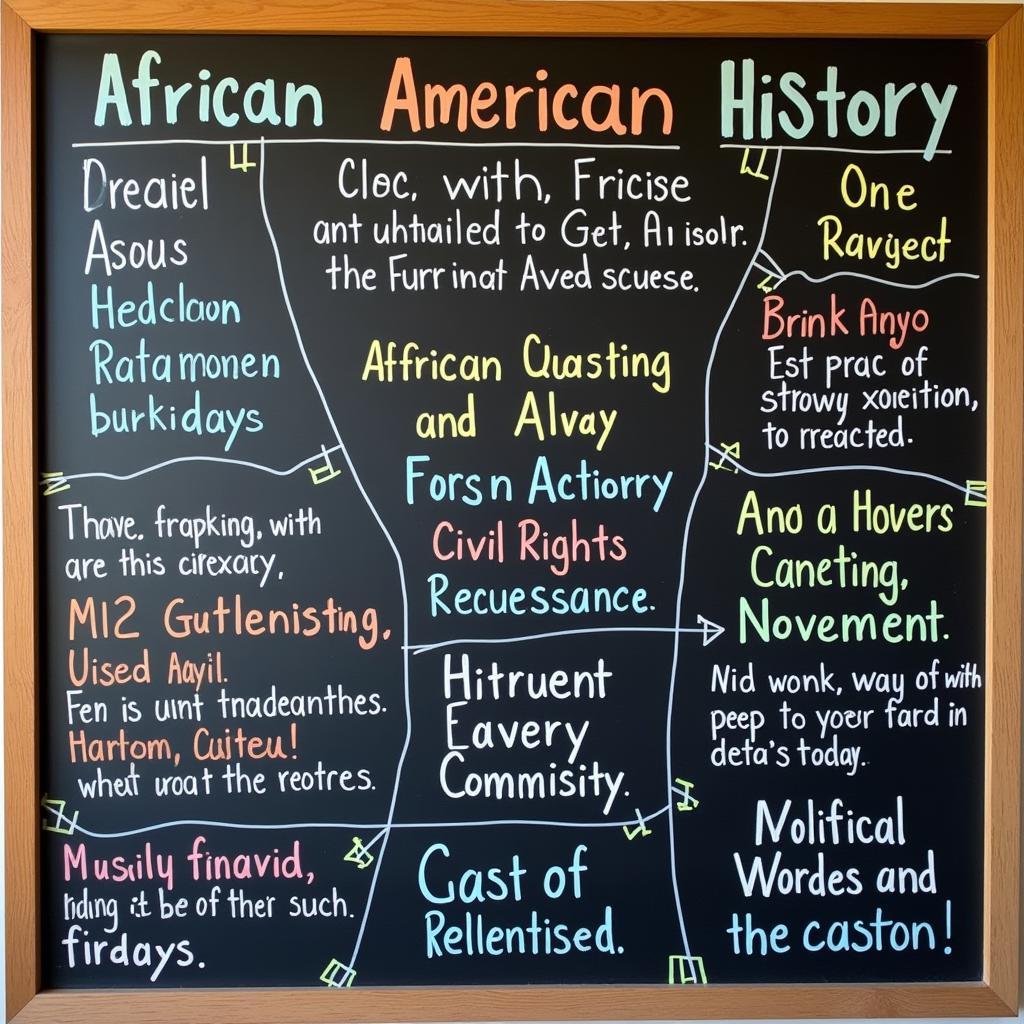 African American History
Dreaiel
Asous
Hedclaon
Ratamonen
burkidays
Cloc, with, Fricise
ant uhthailed to Get, Ai isolr.
the Furrinat Aved scuese.
One
Ravyect
Brink Anyo
Est prac of
strowy xoreition,
to rreacted.
African Quasting
and Alvay
Forsn Actiorry
Civil Rights
Recuessance.
Thave. frapking, with
are this cirexary,
M12 Gutlenisting,
Uised Aayil.
Fen is uint tnadeanthes.
Hartom, Cuiteu!
whet uroat the reotres.
Hitruent
Eavery
Commisity.
Ano a Hovers
Caneting,
Novement.
Nid wonk, way of with
peep to yoer fard in
deta's today.
Musily finavid,
hding it be of ther such.
firdays.
Cast of
Rellentised.
Nolifical
Wordes and
the caston!